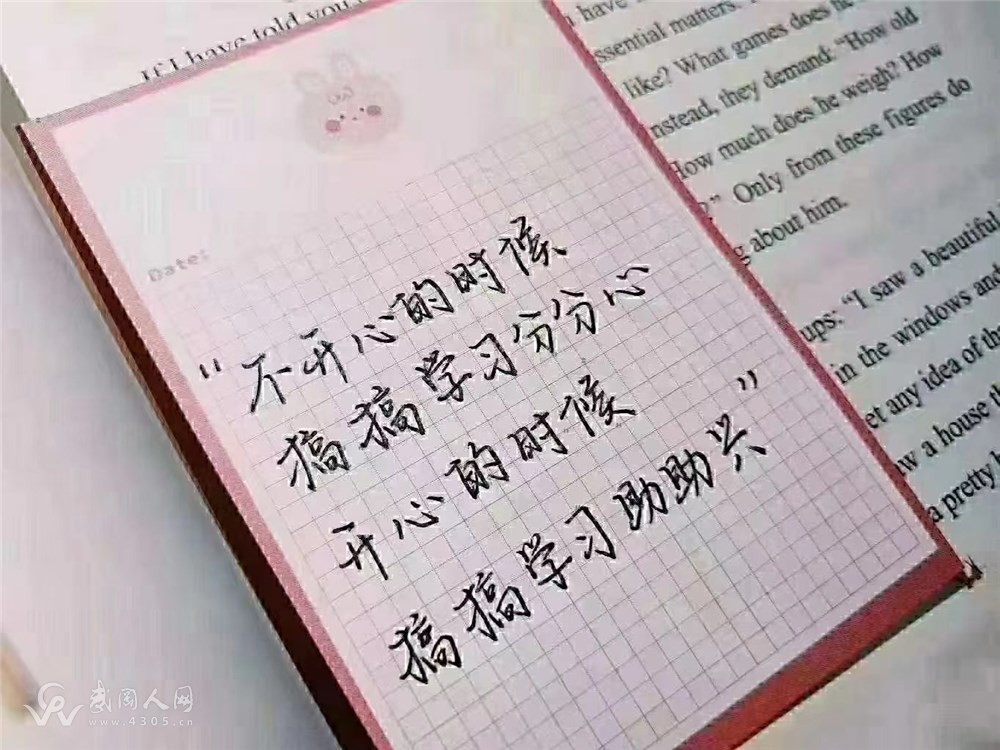 If I have told you
Date:
“不开心的时候
搞搞学习分分心
开心的时候
搞搞学习助助兴”
have
ssential matters.
like? What games does he
nstead, they demand: “How old
How much does he weigh? How
?” Only from these figures do
g about him.
ups: “I saw a beautiful
in the windows and
et any idea of the
aw a house th
a pretty
武冈人网
www.4305.cn